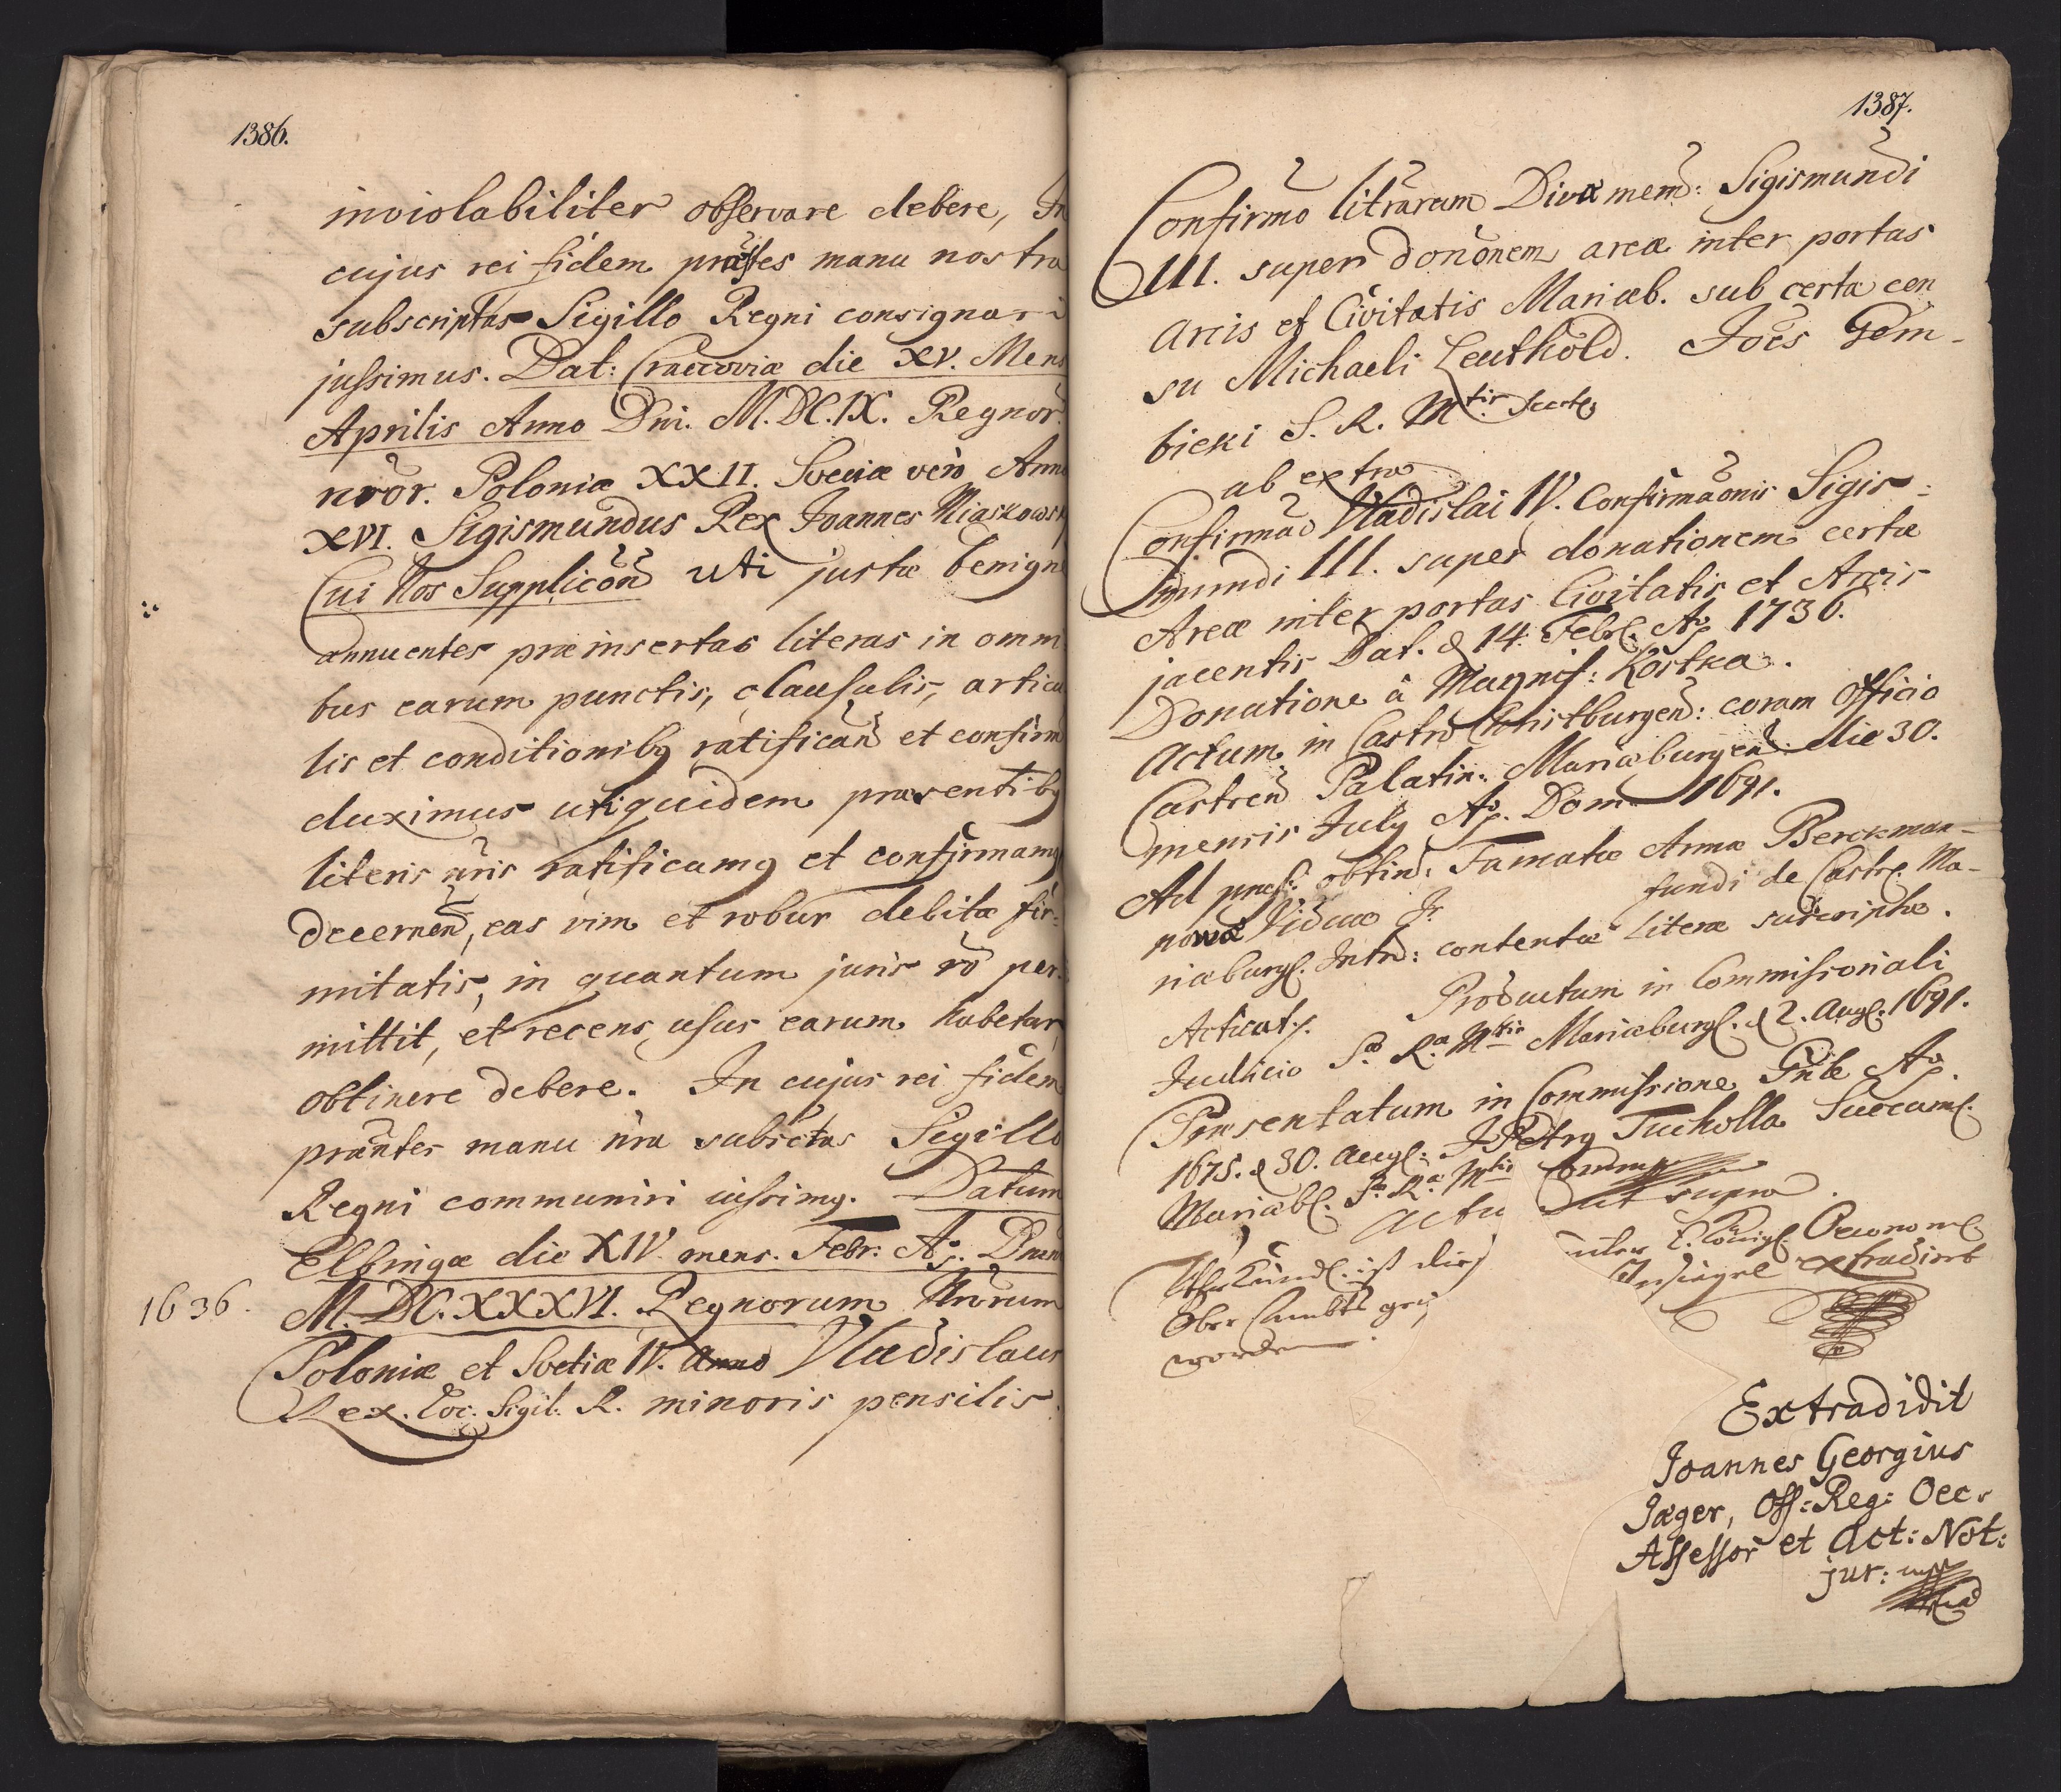 1386.
inviolabiliter observare debere, In
cujus rei fidem præstes manu nostra
subscriptas Sigillo Regni consignari
jussimus. Dat: Cracoviæ die XV. Mens
Aprilis Anno Dni. M.DC.IX. Regnor.
nror. Poloniæ XXII. Sveciæ vero Anno
XVI. Sigismundus Rex Joannes Miaskowsk
Cui Nos Supplicōn uti justæ benigne
annuentes præinsertas literas in omni
bus earum punctis, clausulis, articu
lis et conditionibꝯ ratificand et confirm
duximus utiquidem præsentibꝯ
literis nris ratificamꝯ et confirmamꝯ
decernend, eas vim et robur debitæ fir:
mitatis, in quantum juris rō per:
mittit, et recens usus earum habetur
obtinere debere. In cujus rei fidem
præntes manu nra subsctas Sigillo
Regni communiri iussimꝯ. Datum
Elbingæ die XIV mens. Febr: Ao. Dnen
1636. M.DC.XXXVI. Regnorum Nrorum
Poloniæ et Svetiæ IV. Anno Vladislaus
Rex. Loc. Sigil. R. minoris pensilis.
1387.
Confirmo litrarum Divæ mem: Sigismundi
III. super dononem areæ inter portas
Arcis et Civitatis Mariæb. sub certa cen
su Michaeli Leuthold. Joës Gem-
bicki S. R. Mtis Secrt
ab extra
Confirmao Vladislai IV. Confirmaonis Sigis:
mundi III. super donationem certæ
Areæ inter portas Civitatis et Arcis
jacentis Dat. d 14. Febr. Ao 1736.
Donatione à Magnif: Kostka.
Actum in Castro Christburgen: coram Officio
Castren Palatin: Mariæburgen: die 30.
mensis July Ao. Dom 1691.
Ad præs: obtin: Famatæ Annæ Berckman-
nowa Viduæ Jr. fundi de Castr. Ma-
riæburg. Intro: contentæ Literæ suscriptæ.
Acticat. Productum in Commissoriali
Judicio Sæ Ræ Mtis Mariæburg. d 2. Aug. 1691.
Præsentatum in Commissione Gnle Ao.
1675. d 30. Aug: Petrꝯ Tucholla Succam.
Mariæb. Sæ Ræ Mtis Comm
Actu ut supra.
Uhrkundl. ist dies unter l. Königl. Oeconom.
Ober Ambts Insiegel extradirt
worden.
Extradidit
Joannes Georgius
Jæger, Off: Reg: Oec.
Assessor et Act: Not:
jur: mpp